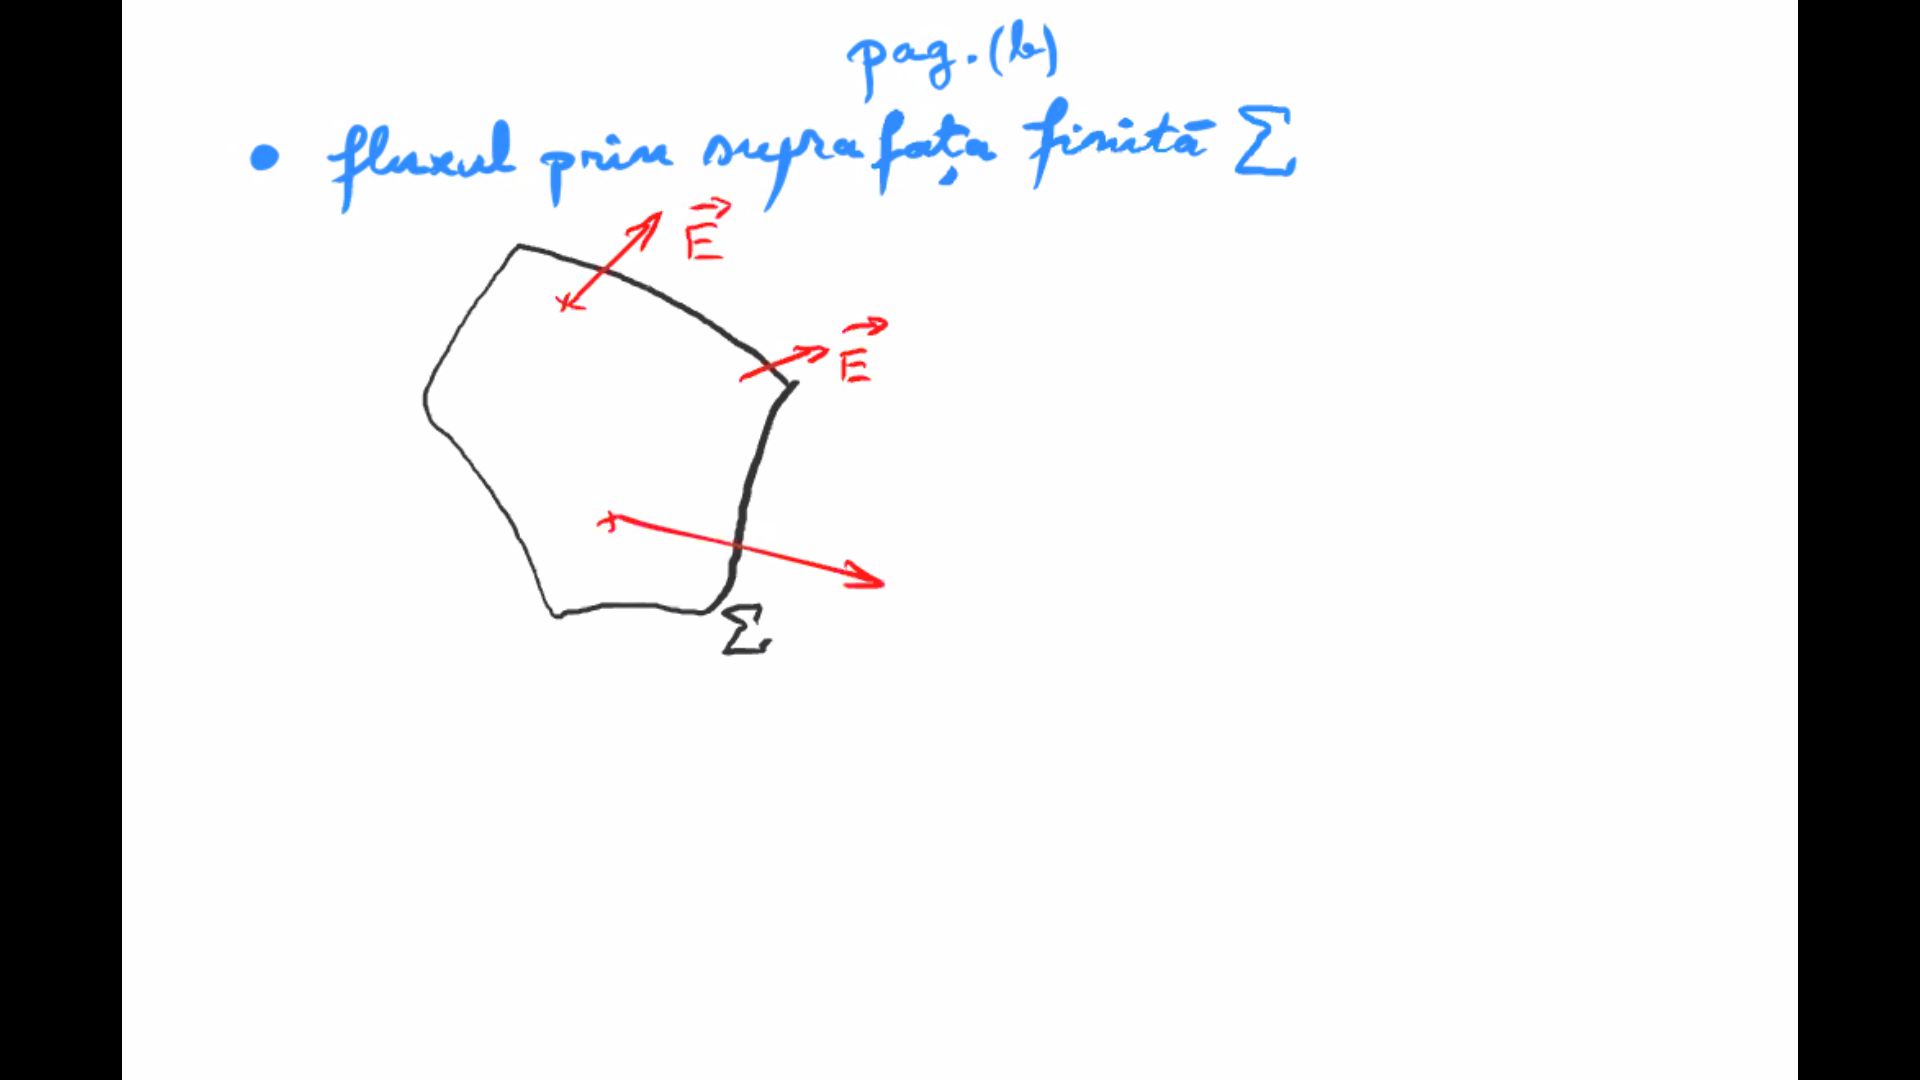 pag. (b)
• fluxul prin suprafața finită Σ
E⃗
E⃗
Σ